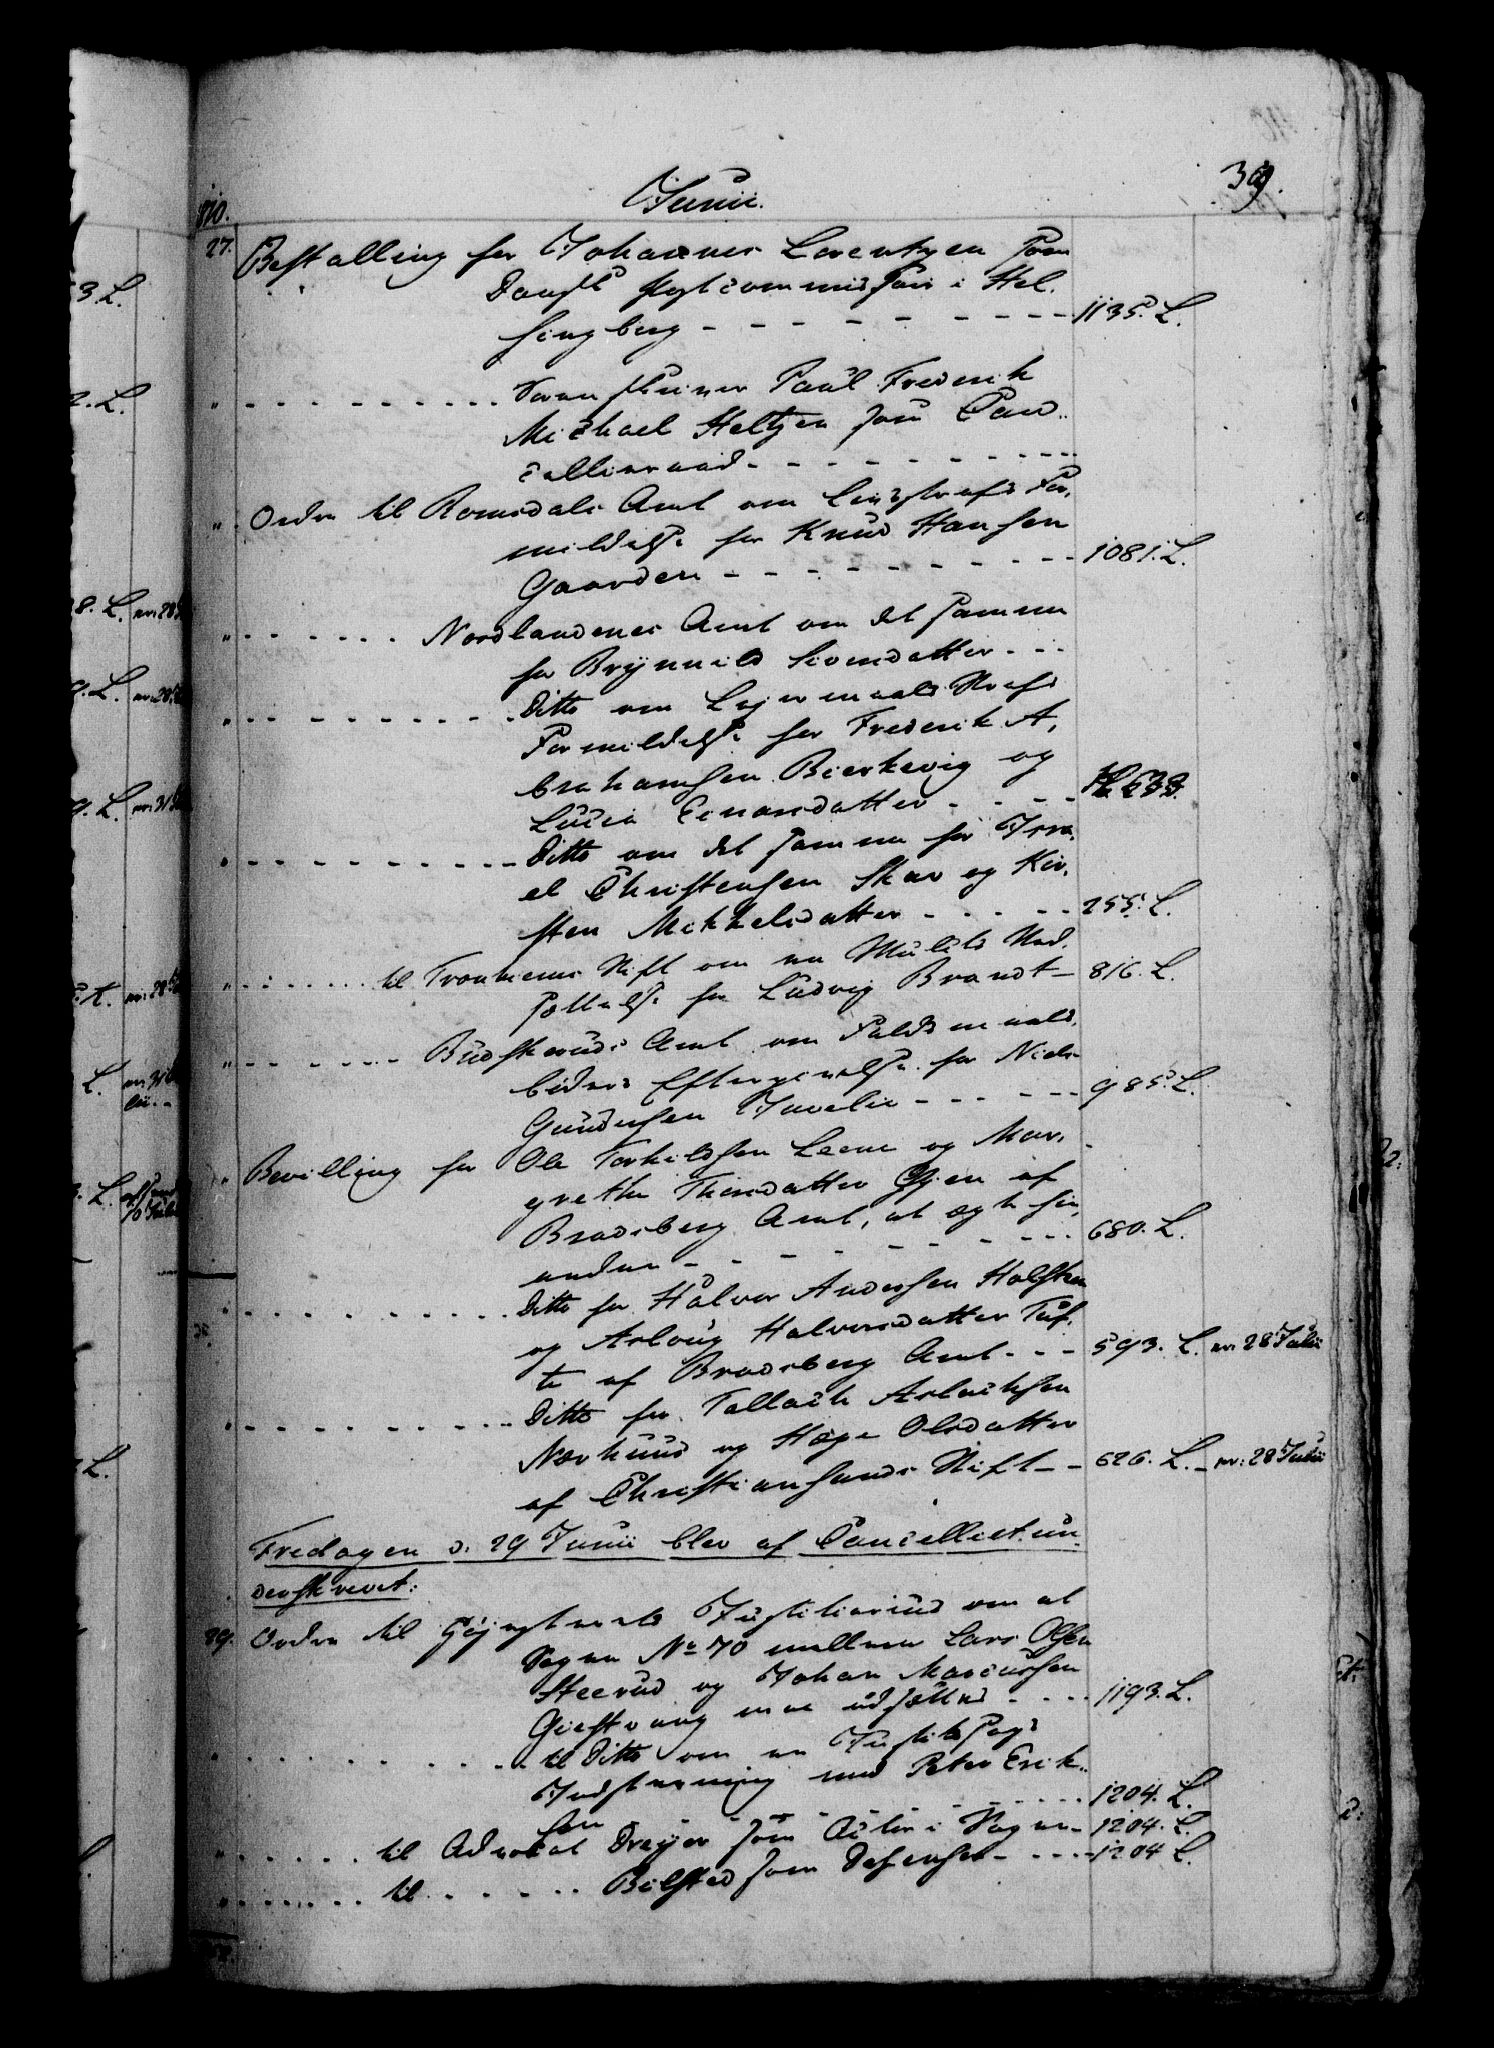 39.
1810.
Junii.
27. Bestalling for Johannes Lorentzen som
Dansk Postcommissair i Hel-
singborg - - - - - - - - - 1135. L.
" - - - - - - - - - - Paul Frederik
Michael Heltzen som Can-
cellieraad - - - - - - - - - -
" Ordre til Romsdals Amt om Livsstrafs For-
mildelse for Knud Hansen
Gaarden - - - - - - - - - - 1081. L.
" - - - - - - Nordlandenes Amt om det samme
for Brynnild Siversdatter - - -
" - - - - - - - - - Ditto om Leiermaals Strafs
Formildelse for Frederik A-
brahamsen Bierkevig og
Lucia Einarsdatter - - - -
" - - - - - - - - - Ditto om det samme for Isra-
el Christensen Skar og Kir-
sten Mikkelsdatter - - - - - 255. L.
" - - - - - - til Tronhiems Stift om en Mulcts Ned-
sættelse for Ludvig Brandt - 816. L.
" - - - - - - Budskeruds Amt om Faldsmaals
bøders Eftergivelse for Niels
Gundersen - - - - - - 985. L.
" Bevilling for Ole Torkildsen Leene og Mar-
grethe Thorsdatter Gjen af
Bradsberg Amt, at ægte hin-
anden - - - - - - - - - 680. L.
" - - - - - - - - - Ditto for Halvor Andersen Holsten
og Asloug Halvorsdatter Tuf-
te af Bradsberg Amt - - - 593. L. er: 28 Julii
" - - - - - - - - - Ditto for Tallach Aslachsen
Nærhuus og Hæge Olsdatter
af Christiansands Stift - - 626. L. - er: 28 Julii
Fredagen d: 29 Junii blev af Cancelliet un-
derskrevet:
29. Ordre til Høiesterets Justitiarius om at
Sagen No 70 mellem Lars Olsen
Steerud og Johan Marcussen
Giestvang maa udsættes - - - - 1193. L.
" - - - - - - - - - til Ditto om en Justits Sags
Indstævning mod Peter Erik-
sen - - - - - - - - - 1204. L.
" - - - - - - til Advocat Dreyer som Actor i Sagen - 1204. L.
" - - - - - - til - - - - - - Bilsted som Defensor - - - - 1204 L.